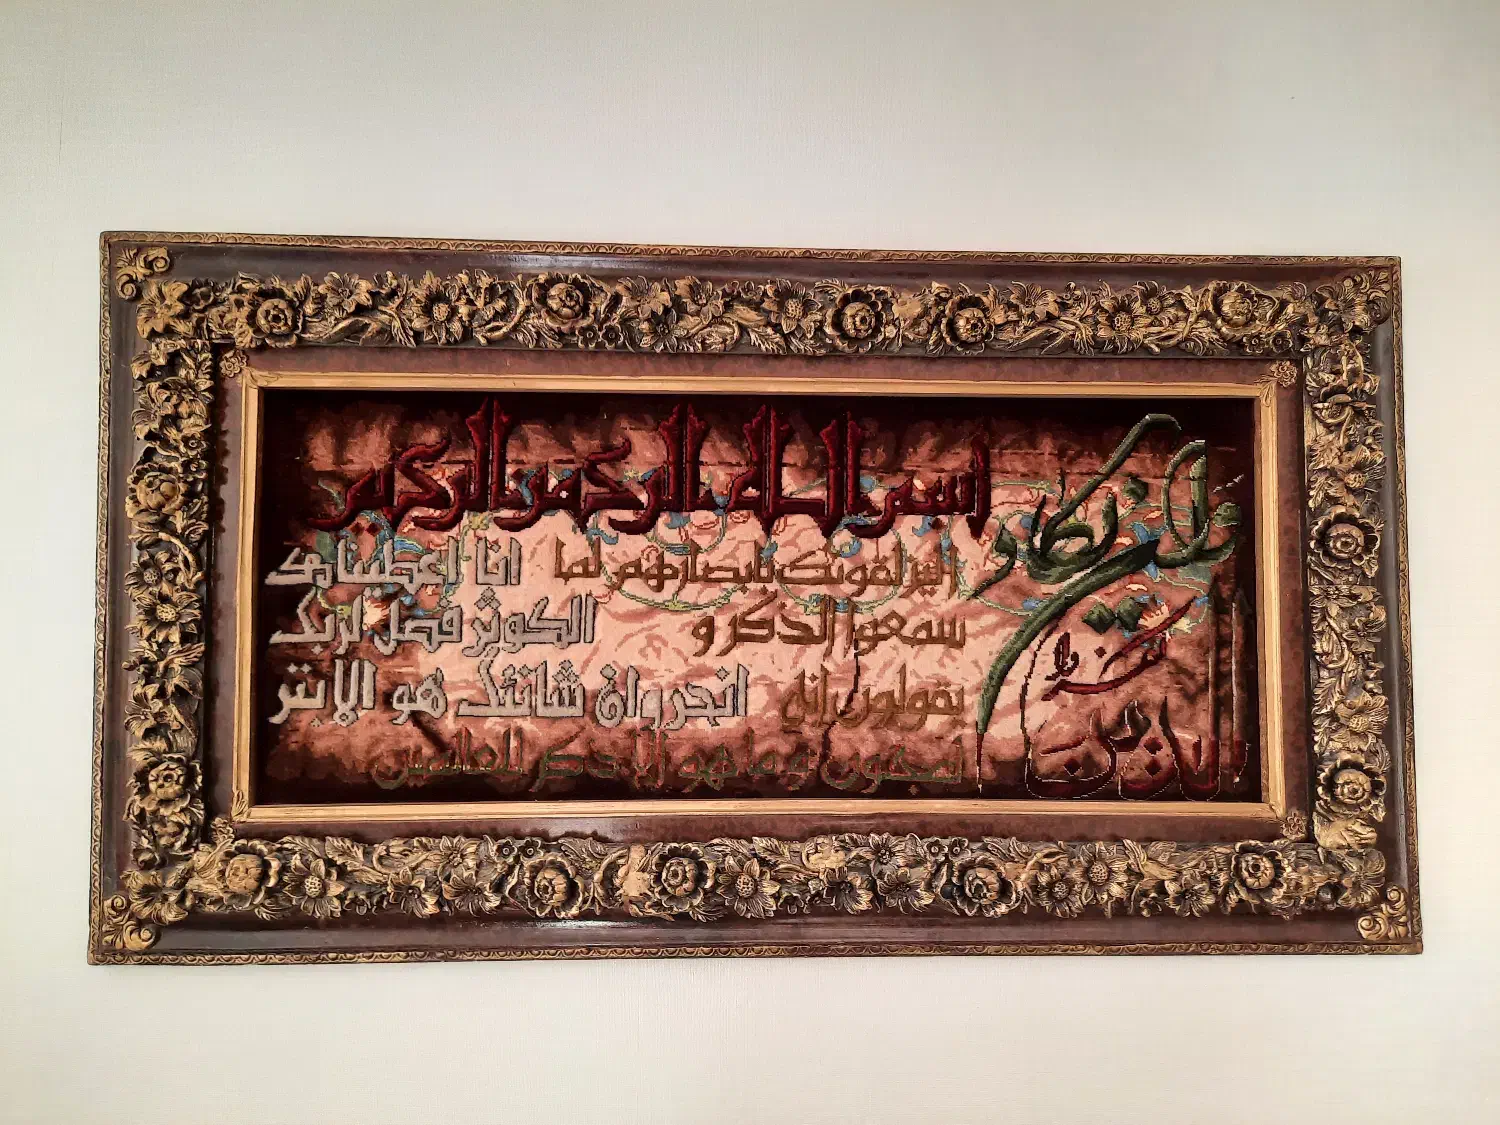 بسم الله الرحمن الرحیم
و ان یکاد الذین کفروا
لیزلقونک بابصارهم لما
سمعوا الذکر و
یقولون انه
لمجنون و ما هو الا ذکر للعالمین
انا اعطیناک
الکوثر فصل لربک
و انحر ان شانئک هو الابتر